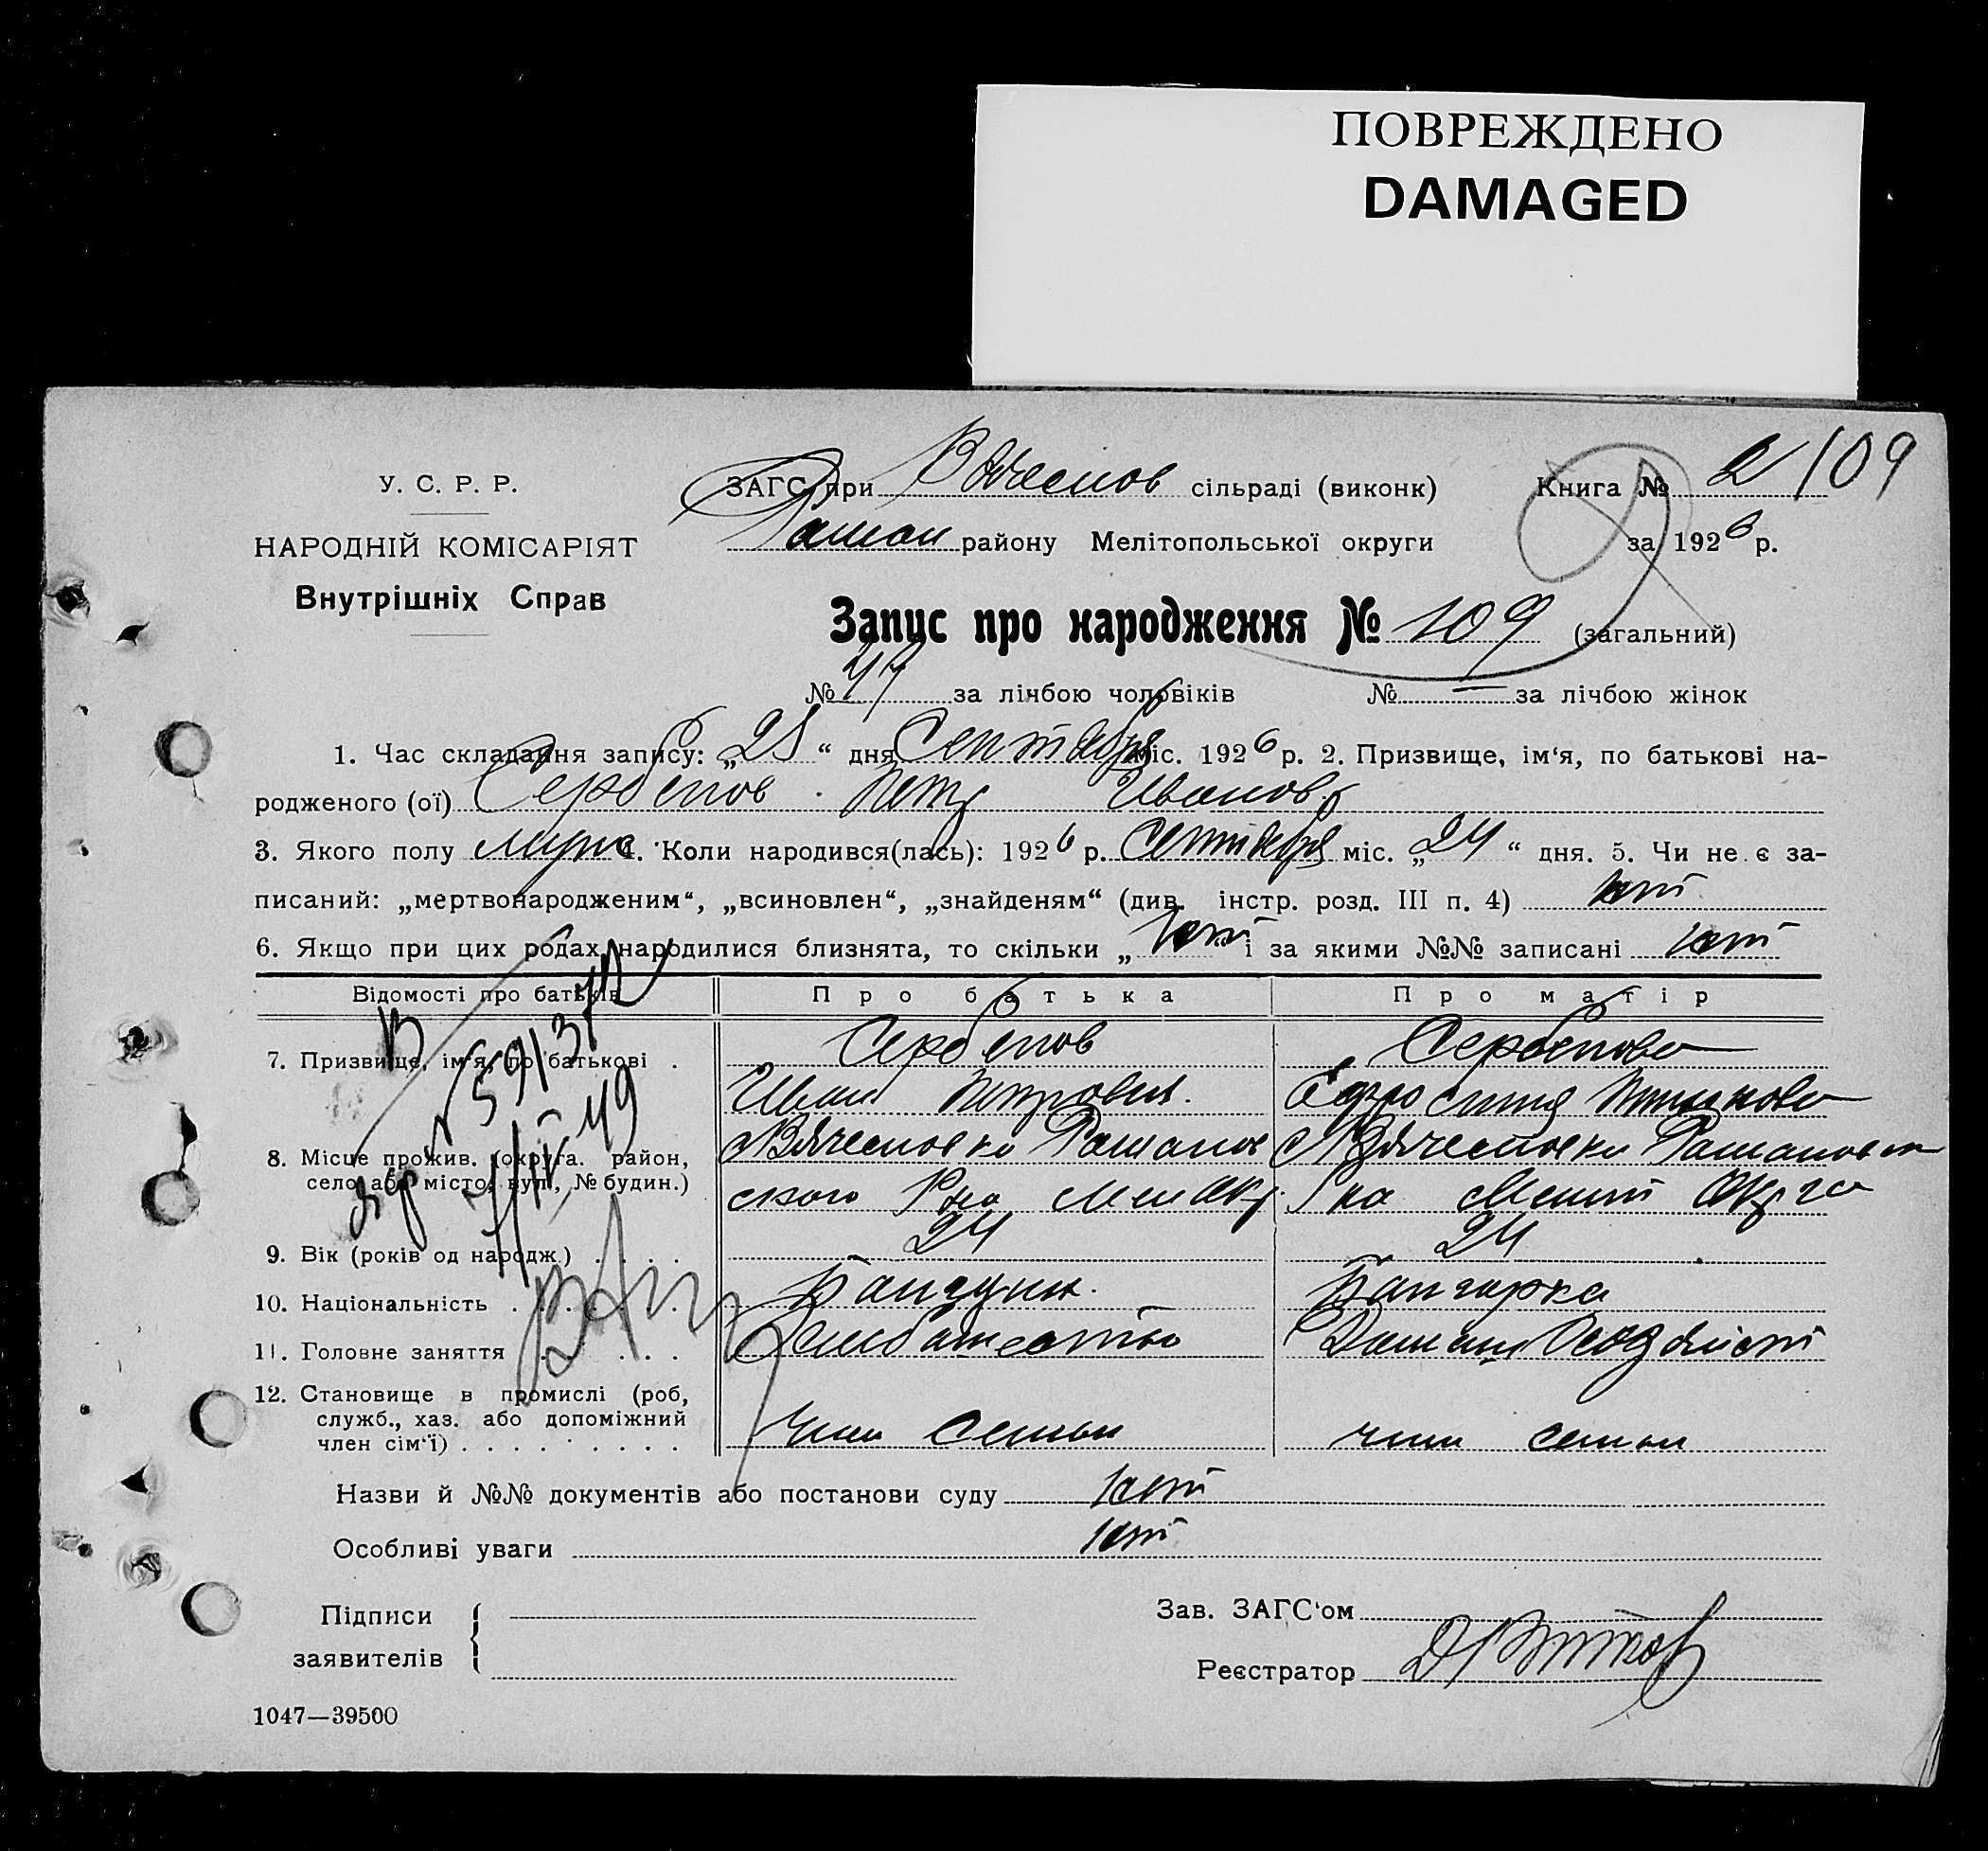 ПОВРЕЖДЕНО
DAMAGED
У. С. Р. Р.
НАРОДНІЙ КОМІСАРІЯТ
Внутрішніх Справ
ЗАГС при Вячеслов сільраді (виконк)
району Мелітопольської округи
Книга № 2 109
за 1926 р.
Запис про народження № 109 (загальний)
№ 47 за лічбою чоловіків № — за лічбою жінок
1. Час складання запису: „28“ дня Сентября міс. 1926 р. 2. Призвище, ім‘я, по батькові на-
родженого (ої) Сербенов Петр Иванов.
3. Якого полу муж 4. Коли народився(лась): 1926 р. Сентября міс. „24“ дня. 5. Чи не є за-
писаний: „мертвонародженим“, „всиновлен“, „знайденям“ (див. інстр. розд. III п. 4) нет
6. Якщо при цих родах народилися близнята, то скільки „нет“ і за якими №№ записані нет
Відомості про батьків Про батька Про матір
7. Призвище, ім‘я, по батькові . Сербенов Сербенова
Иван Петрович. Ефросиния
8. Місце прожив. (округа. район,
село або місто, вул., № будин.)
ского Рна Мел Окр. Рна Мелит Окрга
9. Вік (років од народж.) . . . . 24 24
10. Національність . . . . . Болгарка
11. Головне заняття . . . . Домаш Хозяйст
12. Становище в промислі (роб,
служб., хаз. або допоміжний
член сім‘ї) . . . . . . . . . член семьи член семьи
Назви й №№ документів або постанови суду нет
Особливі уваги нет
Підписи
заявителів
Зав. ЗАГС‘ом
Реєстратор
1047—39500